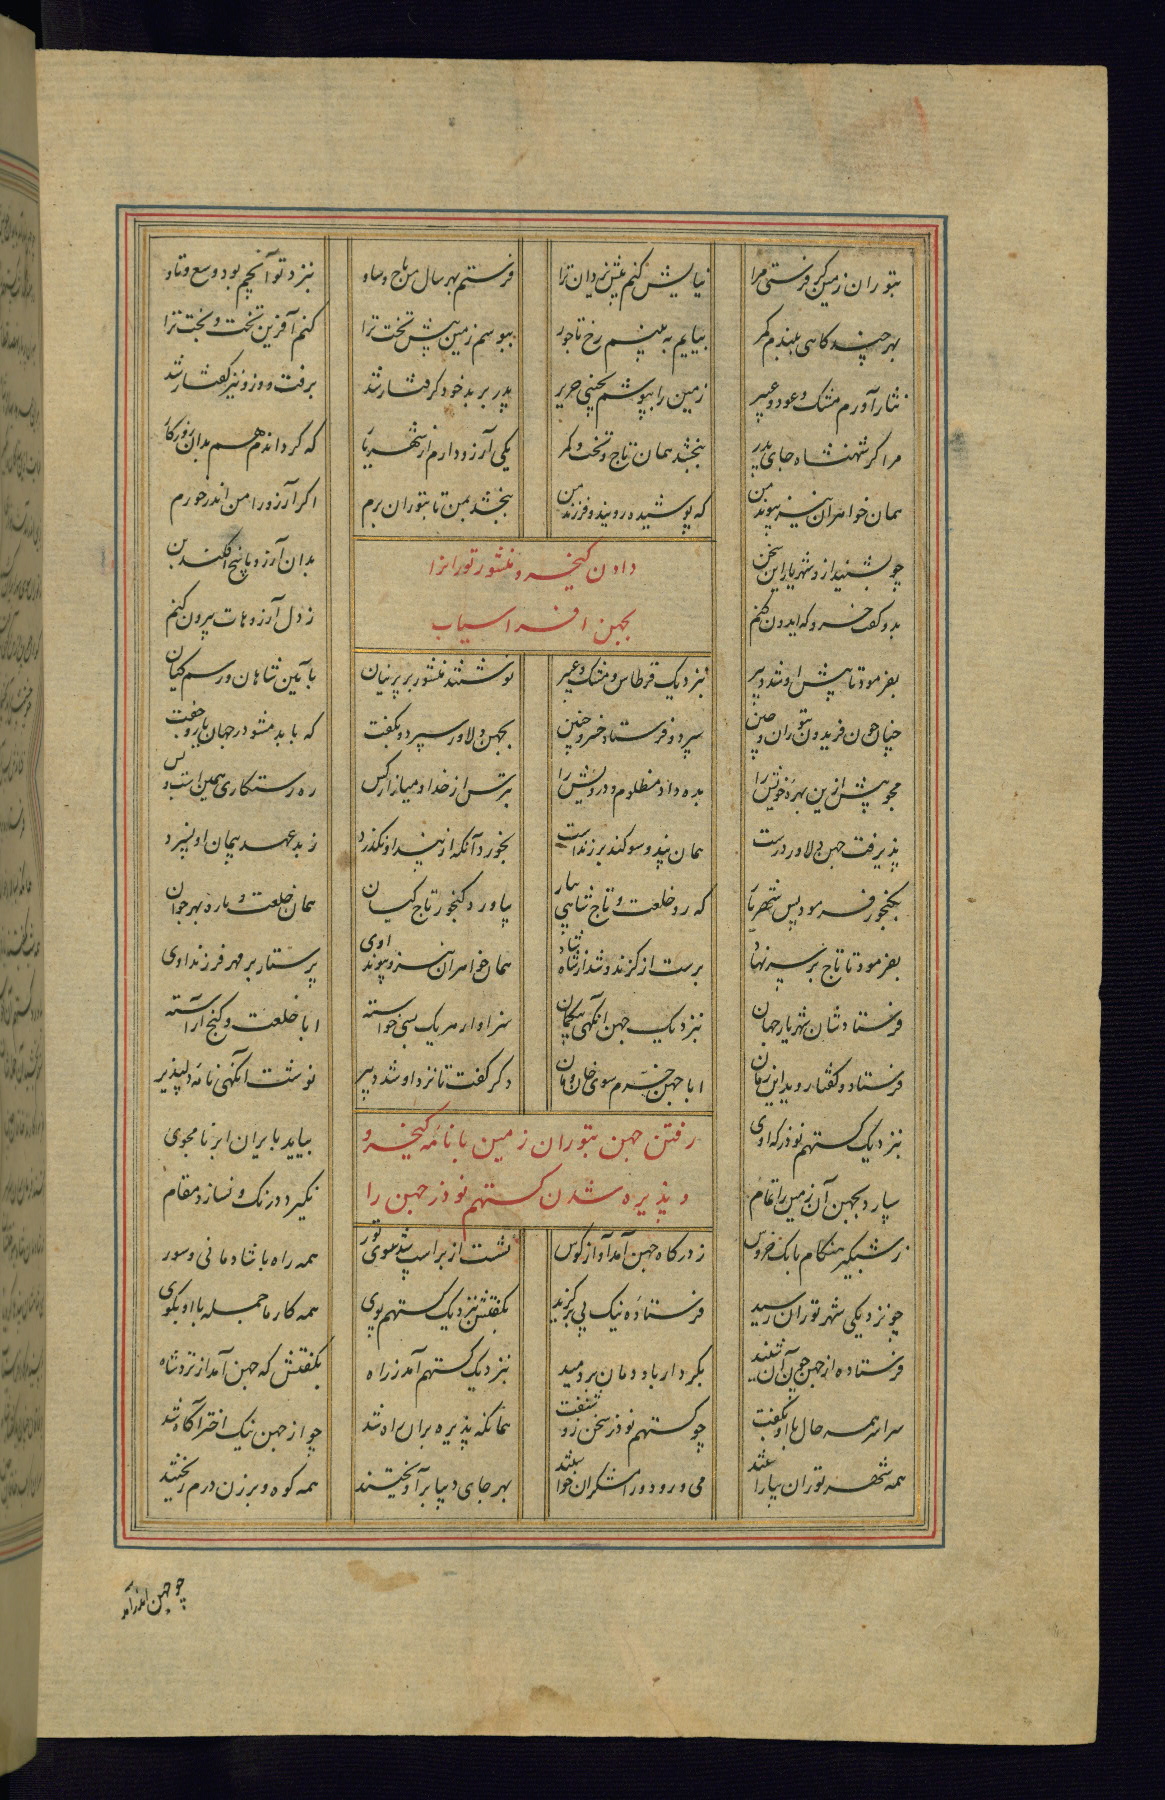 بتوران زمین گر فرستی مرا نیایش کنم پیش یزدان ترا فرستم بهر سال من باج و ساو بنزد تو آنچم بود وسع و تاو
بهر چند گاهی ببندم کمر بیایم به بینم رخ تاجور ببوسم زمین پیش تخت ترا کنم آفرین تخت و بخت ترا
نثار آورم مشک و عود و عبیر زمین را بپوشم بچینی حریر پدر بر بد خود گرفتار شد برفت و وزو نیز گفتار شد
مرا گر شهنشاه جای پدر ببخشد همان تاج و تخت و کمر یکی آرزو دارم از شهریار که گرداندم هم بدان روزگار
همان خواهران نیز پیوند من که پوشیده رویند و فرزند من ببخشد بمن تا بتوران برم اگر آرزو را من اندر خورم
چو بشنید ازو شهریار این سخن بدان آرزو پاسخ افکند بن
دادن کیخسرو منشور تورانرا
بدو گفت خسرو که ایدون کنم ز دل آرزوهات بیرون کنم
بجهن افراسیاب
بفرمود تا پیش او شد دبیر بنزدیک قرطاس و مشک و عبیر نوشتند منشور بر پرنیان بآیین شاهان و رسم کیان
چنان چون فریدون بتوران و چین سپرد و فرستاد خسرو چنین بجهن دلاور سپرد و بگفت که باید مشو در جهان یار و جفت
مجو بیش ازین بهره خویش را بده داد مظلوم و درویش را بترس از خدا و میازار کس ره رستگاری همین است و بس
پذیرفت جهن دلاور درست همان پند و سوگند برزندست بخورد آنکه از پند او نگذرد ز بد عهد و پیمان او نسپرد
بگنجور فرمود پس شهریار که رو خلعت و تاج شاهی بیار بیاورد گنجور تاج کیان همان خلعت و یاره بهر جوان
بفرمود تا تاج بر سر نهاد برست از گزند و شد از شاه شاد همان خواهران نیز و پیوند اوی پرستار بر مهر فرزند اوی
فرستادشان شهریار جهان بنزدیک جهن آنگهی بیگمان سزاوار هر یک بسی خواسته ابا خلعت و گنج آراسته
فرستاد و گفتا روید این زمان ابا جهن خرم سوی خان و مان دگر گفت تا نزد او شد دبیر نوشت آنگهی نامه دلپذیر
بنزدیک گستهم نوذر که اوی بیاید بایران ابر نامجوی
رفتن جهن بتوران زمین با نامه کیخسرو
سپارد بجهن آن زمین را تمام نگیرد درنگ و نسازد مقام
و پذیره شدن گستهم نوذر جهن را
ز شبگیر هنگام بانگ خروس ز درگاه جهن آمد آواز کوس نشست از بر اسپ شد سوی تور همه راه با شادمانی و سور
چو نزدیکی شهر توران رسید فرستاده نیک پی برگزید بگفتش بنزدیک گستهم پوی همه کار ما جمله با او بگوی
فرستاده از جهن چون آن شنید بکردار باد دمان بردمید بنزدیک گستهم آمد ز راه بگفتش که جهن آمد از نزد شاه
سراسر همه حال با او بگفت چو گستهم نوذر سخن زو شنفت همانگه پذیره بران راه شد چو از جهن نیک اختر آگاه شد
همه شهر توران بیاراستند می و رود و رامشگران خواستند بهر جای دیبا برآویختند همه کوه و برزن درم ریختند
چو جهن اندر آمد